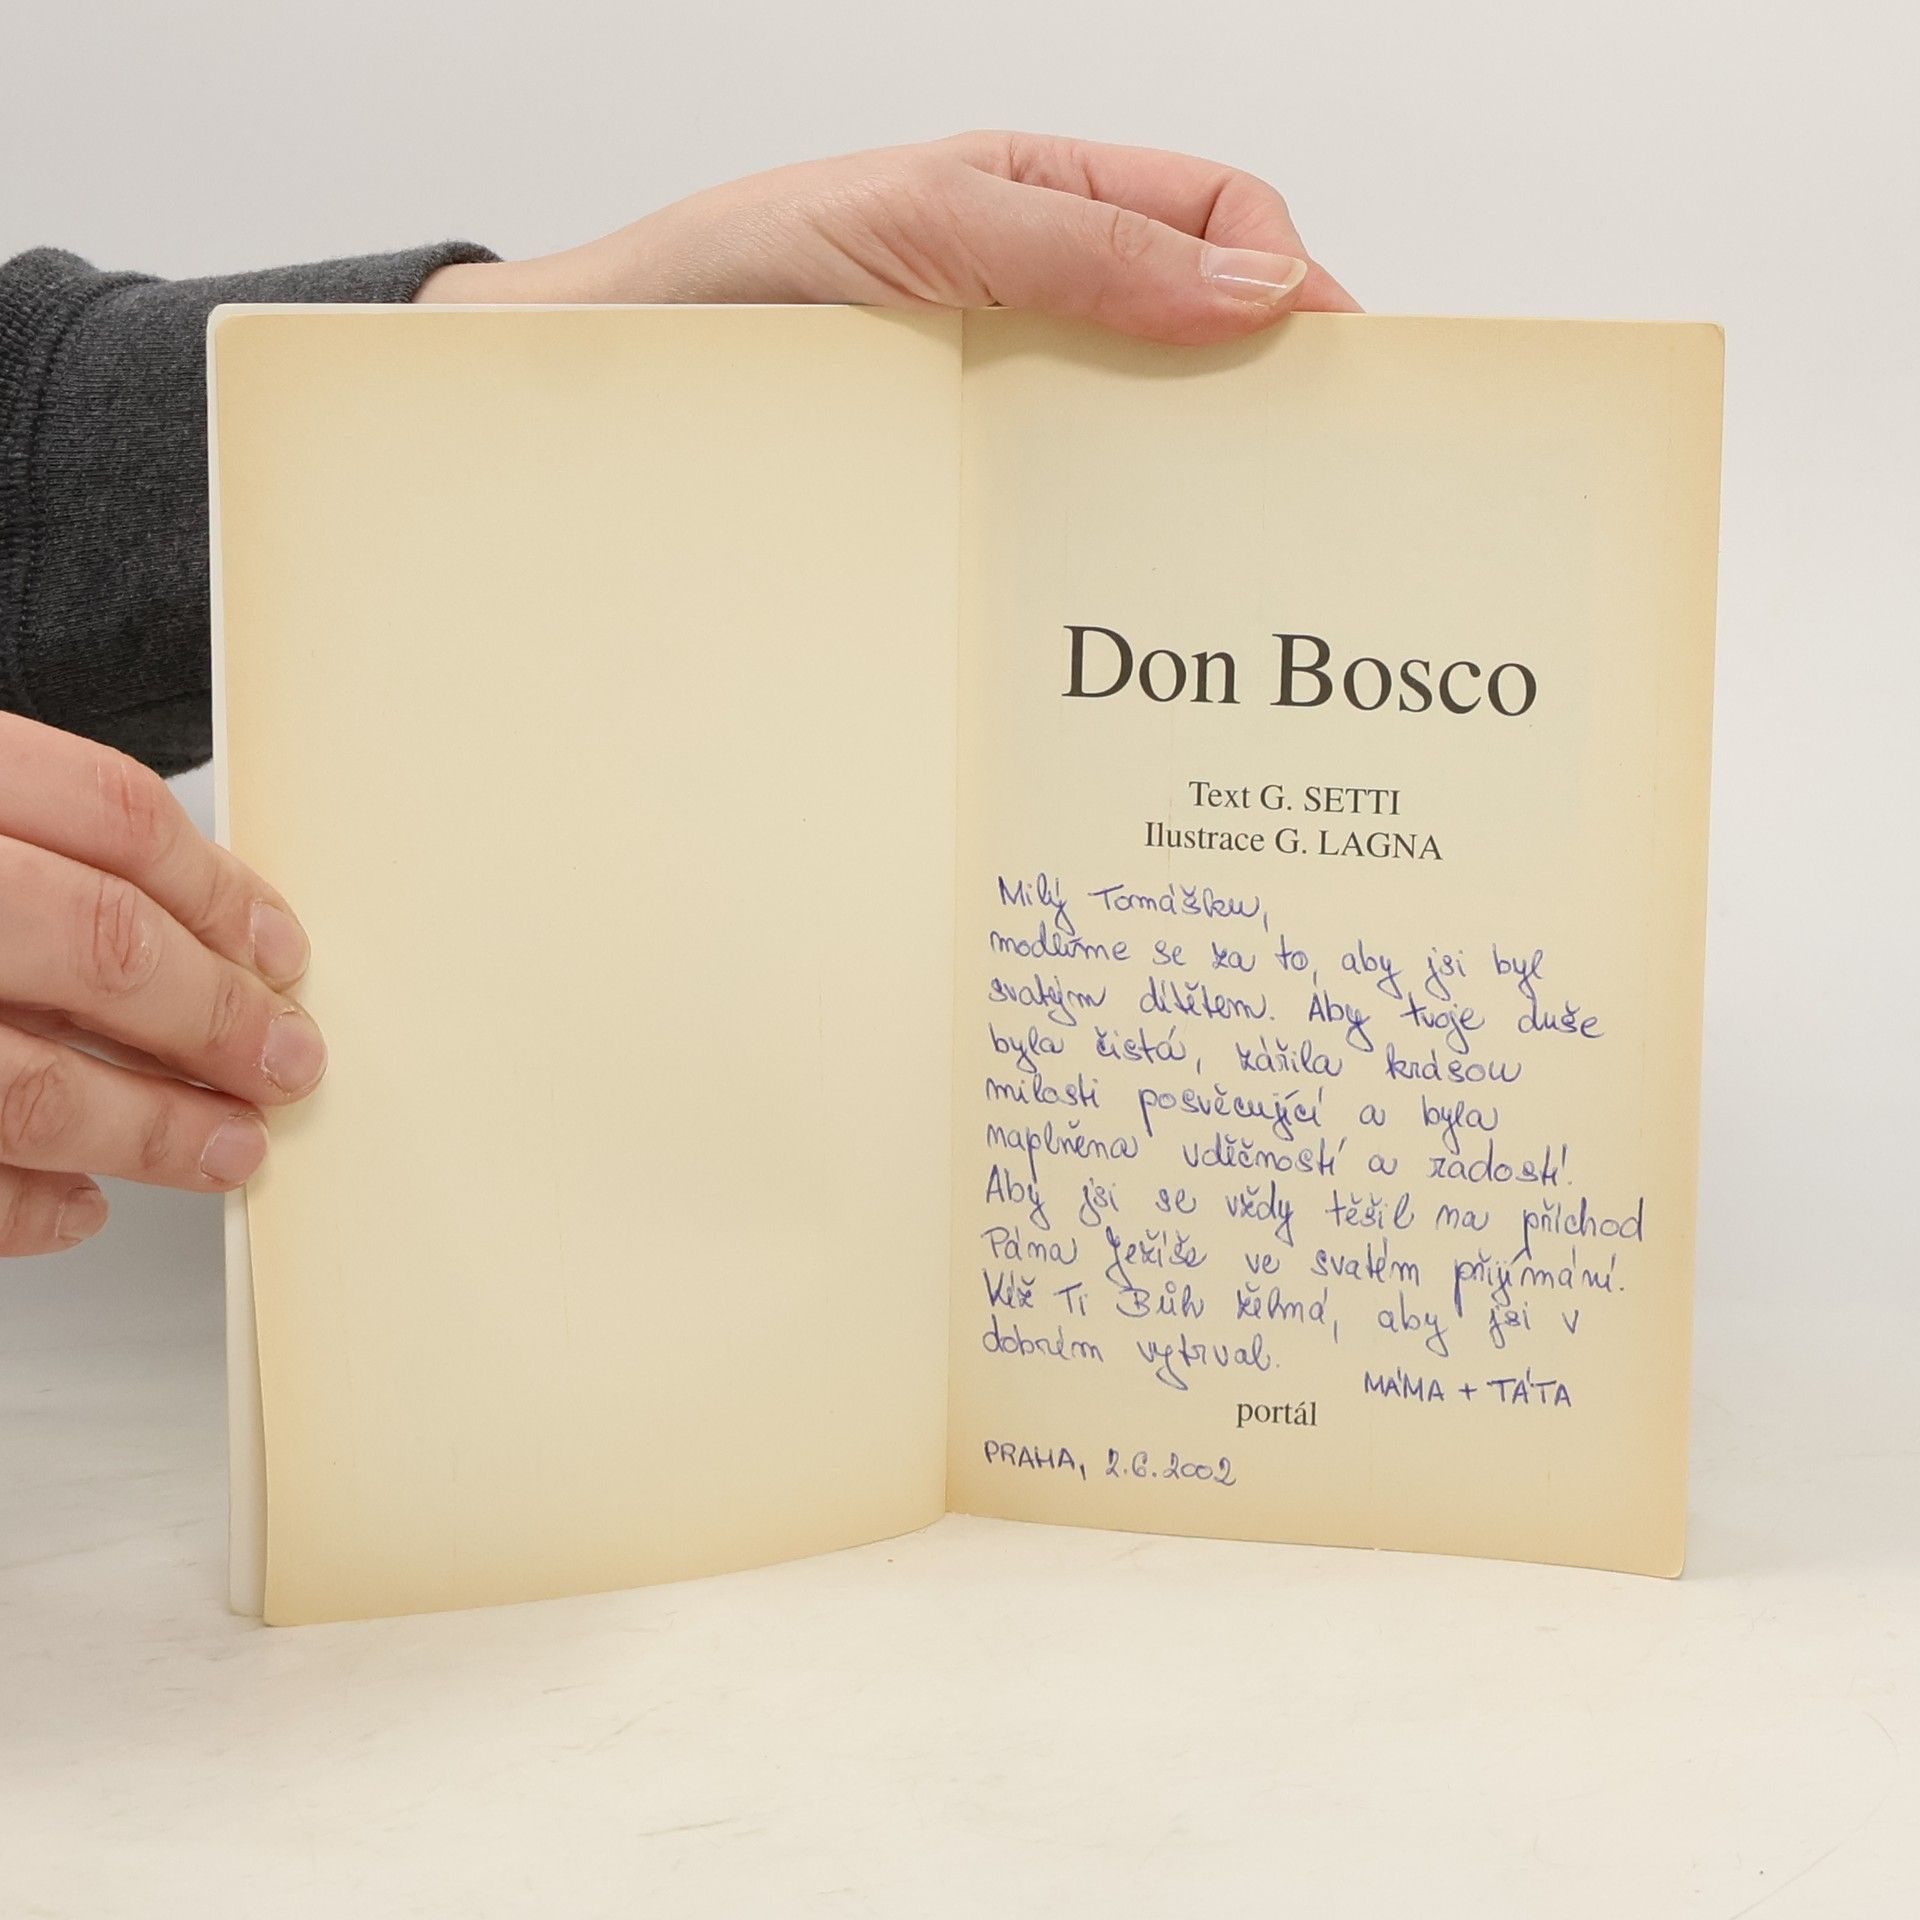 Don Bosco
Text G. SETTI
Ilustrace G. LAGNA
Milý Tomášku,
modlíme se za to, aby jsi byl
svatým dítětem. Aby tvoje duše
byla čistá, zářila krásou
milosti posvěcující a byla
naplněna vděčností a radostí.
Aby jsi se vždy těšil na příchod
Pána Ježíše ve svatém přijímání.
Kéž Ti Bůh žehná, aby jsi v
dobrém vytrval.
MÁMA + TÁTA
portál
PRAHA, 2.6.2002